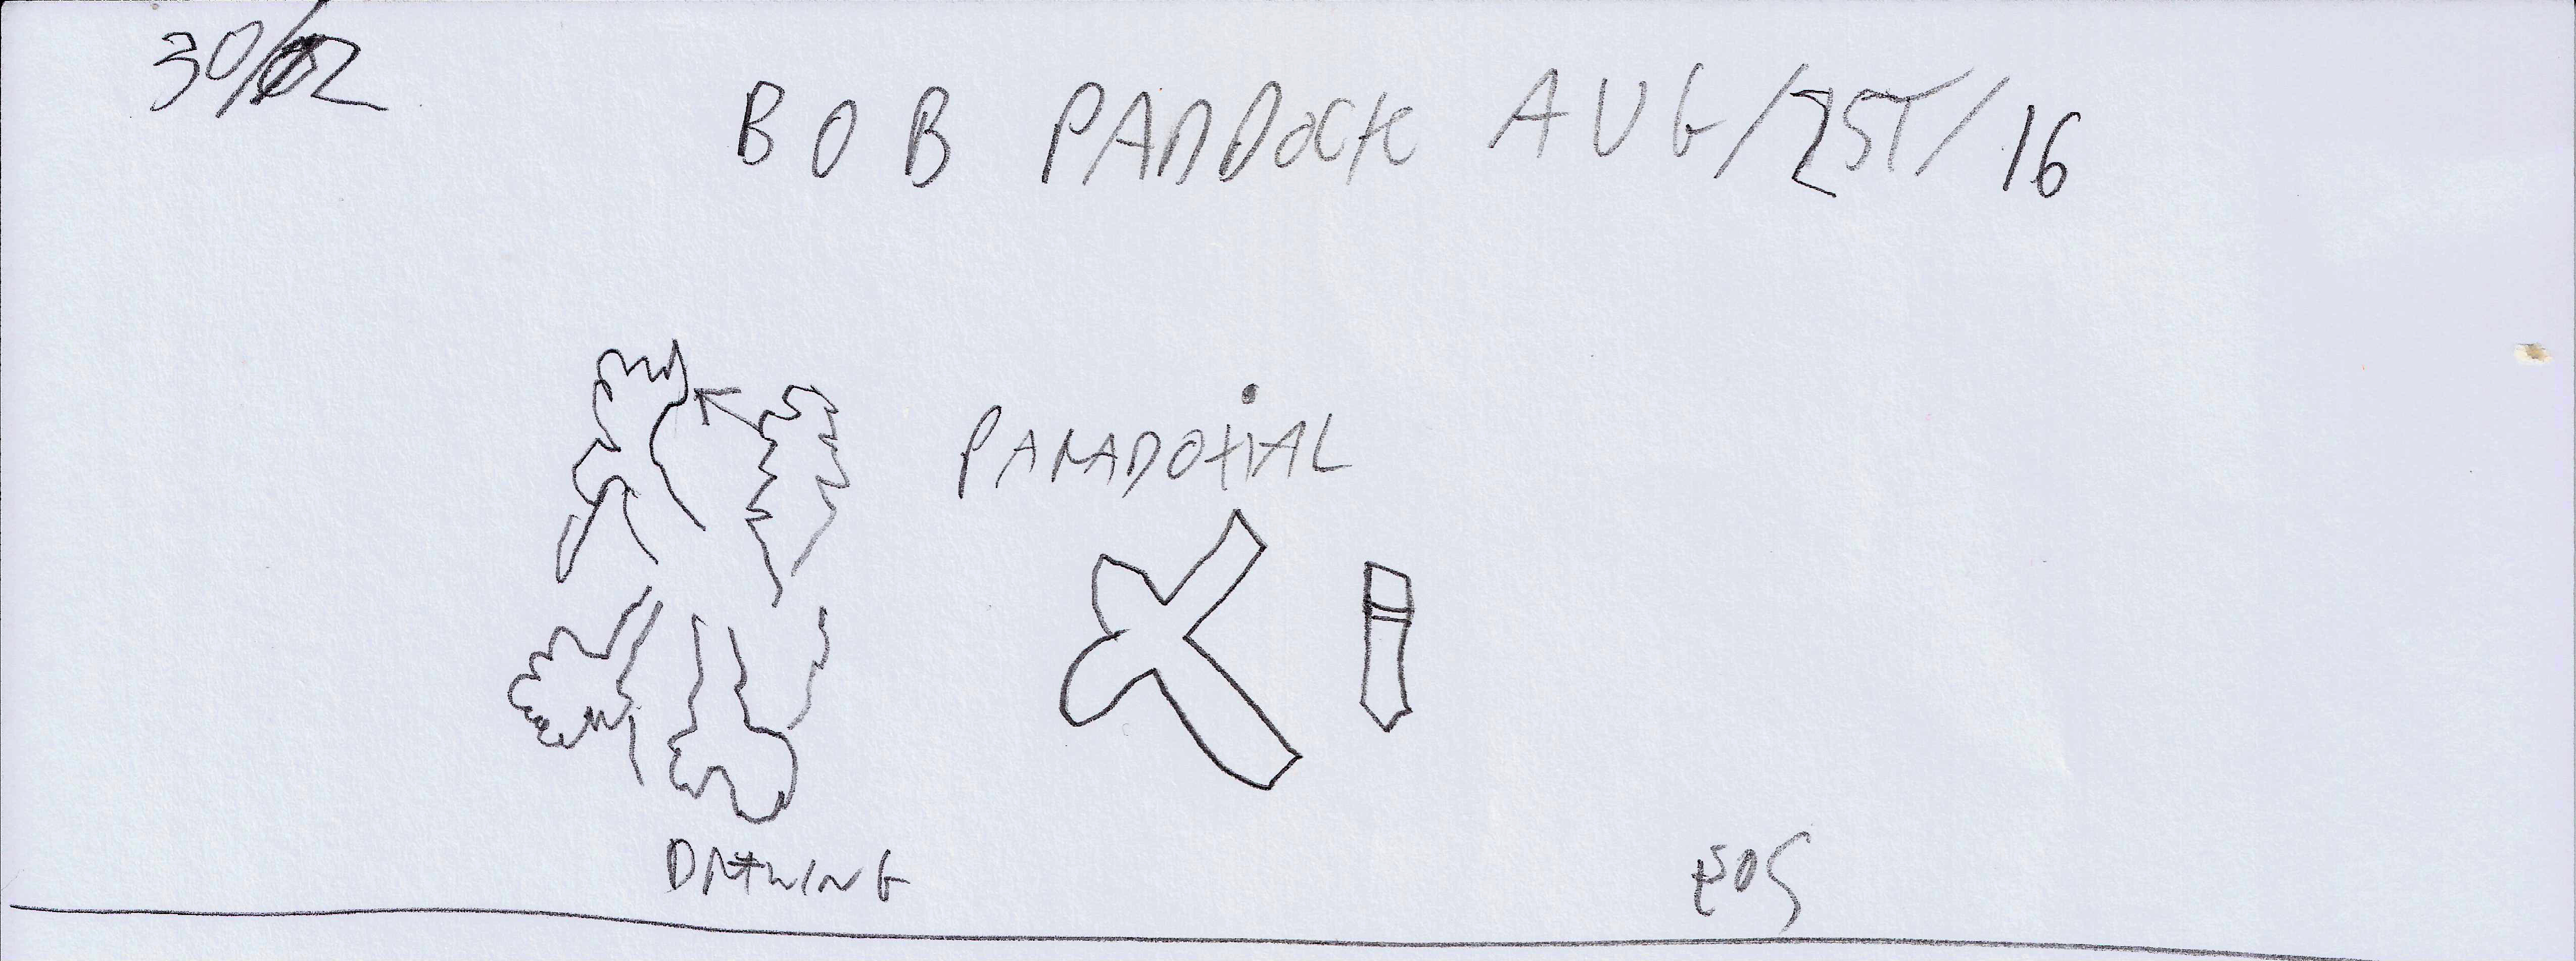 30/02
BOB PADDOCK AUG/25T/16
PARADOXIAL
DRAWING